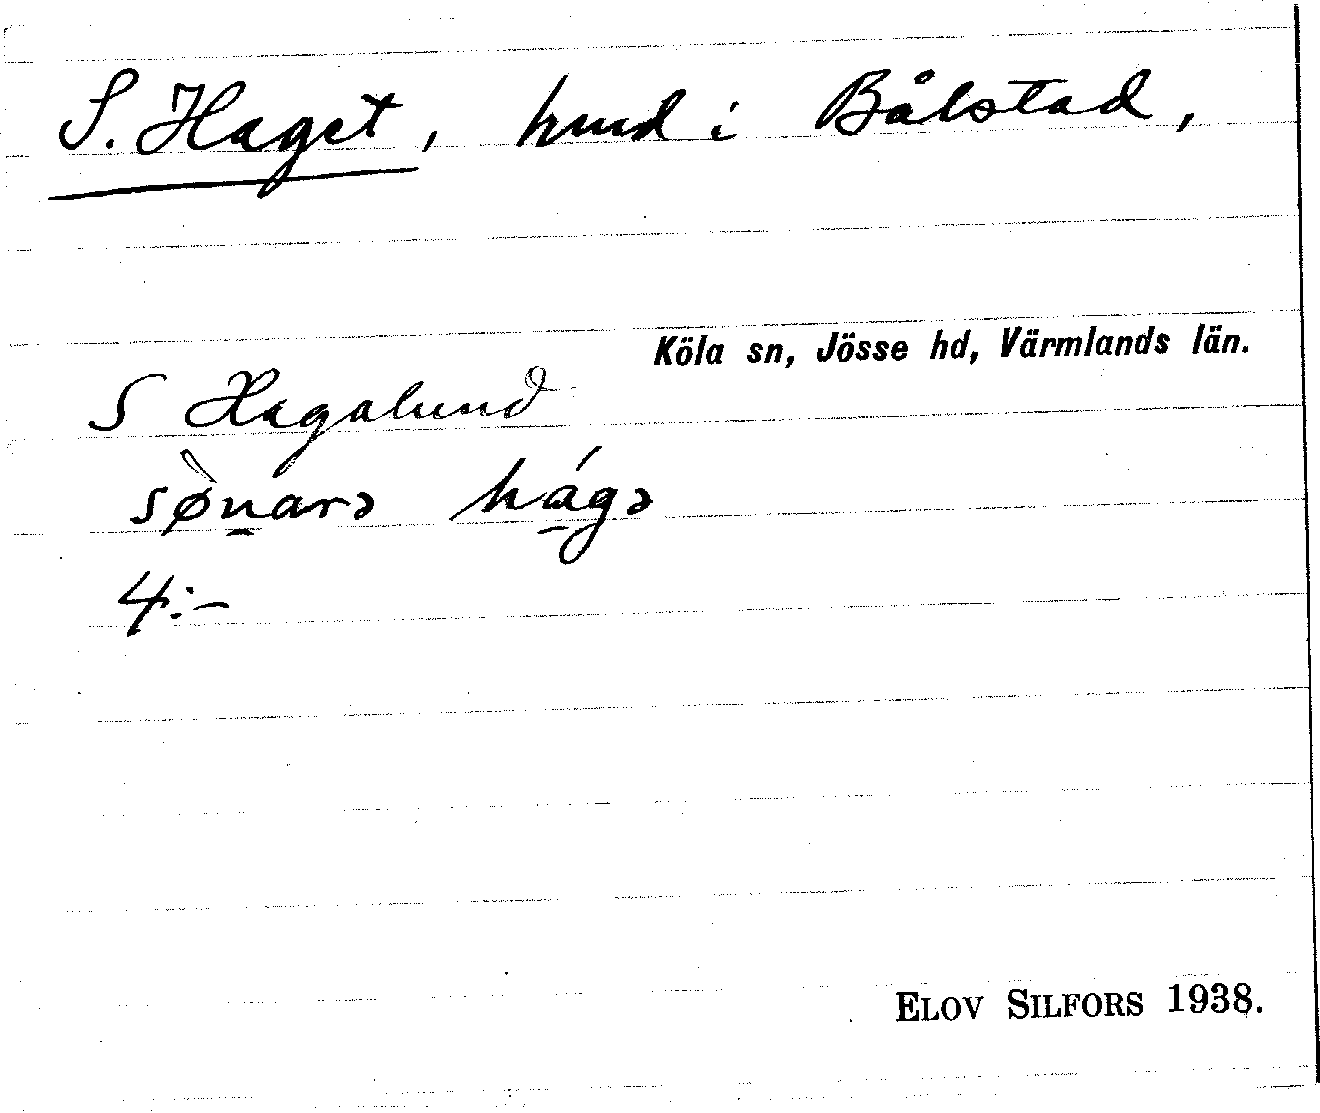 S. Haget, hmd i Bålstad,
Köla sn, Jösse hd, Värmlands län.
S Hagalund
sø̀narə hágə
4:-
ELOV SILFORS 1938.